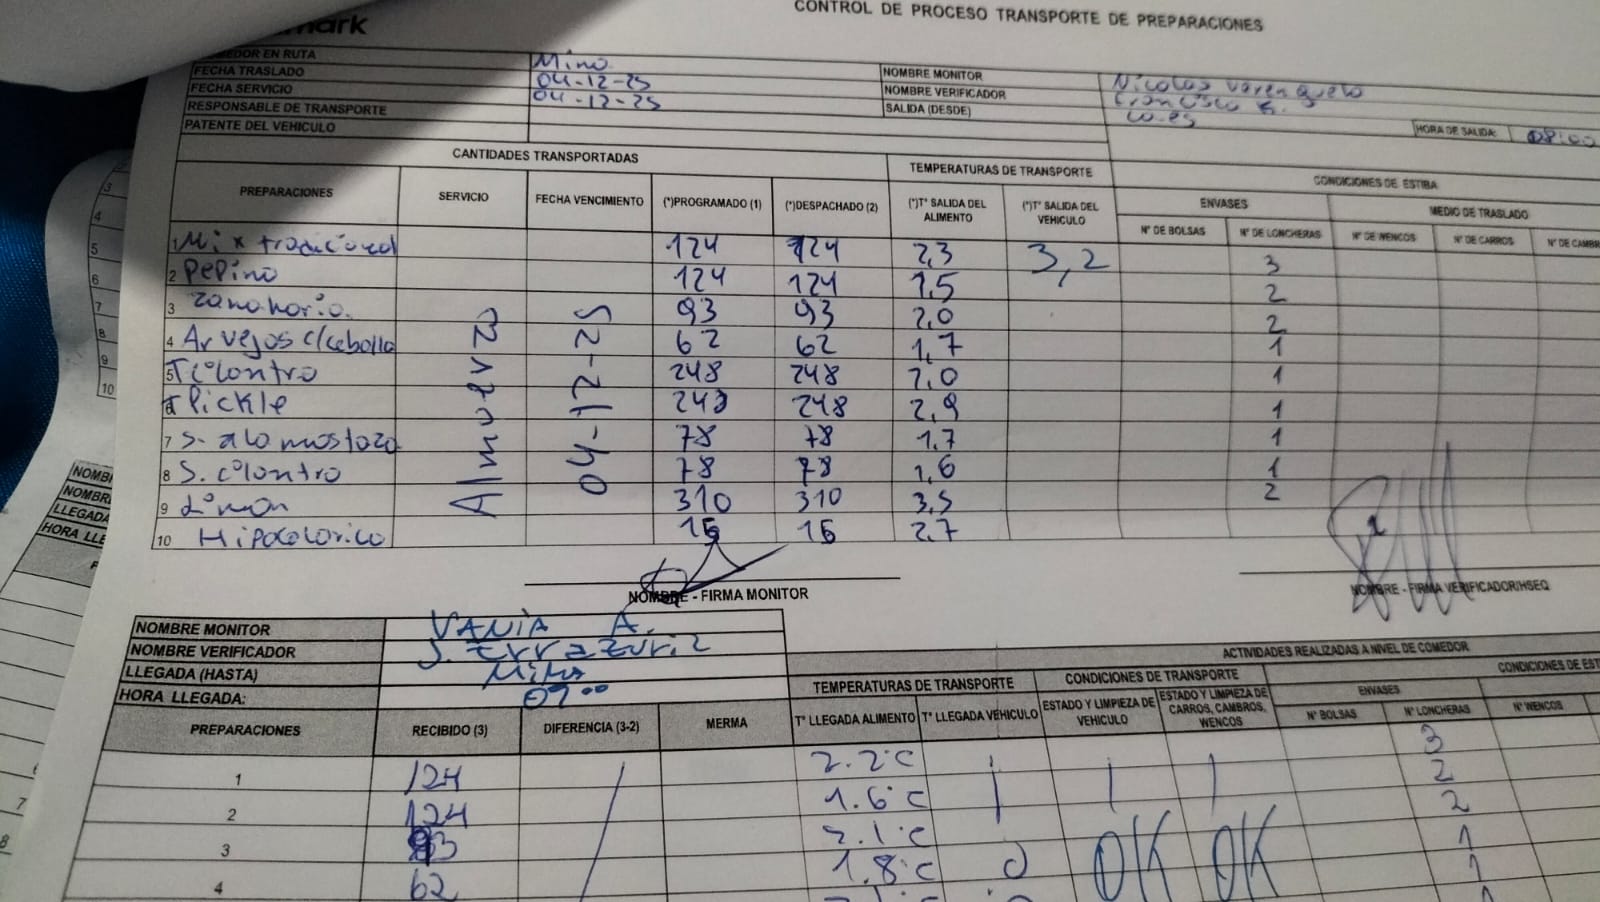 CONTROL DE PROCESO TRANSPORTE DE PREPARACIONES
mark
EDOR EN RUTA Mina
FECHA TRASLADO 04-12-25 NOMBRE MONITOR Nicolas
FECHA SERVICIO 04-12-25 NOMBRE VERIFICADOR Francisco R.
RESPONSABLE DE TRANSPORTE SALIDA (DESDE)
PATENTE DEL VEHICULO HORA DE SALIDA: 08:00
CANTIDADES TRANSPORTADAS TEMPERATURAS DE TRANSPORTE CONDICIONES DE ESTIBA
PREPARACIONES SERVICIO FECHA VENCIMIENTO (*)PROGRAMADO (1) (*)DESPACHADO (2) (*)T° SALIDA DEL ALIMENTO (*)T° SALIDA DEL VEHICULO ENVASES MEDIO DE TRASLADO
N° DE BOLSAS N° DE LONCHERAS N° DE WENCOS N° DE CARROS N° DE CAMBR
Almuerzo 04-12-25
1 Mix tradicional 124 124 2,3 3,2 3
2 Pepino 124 124 1,5 2
3 zanahoria. 93 93 2,0 2
4 Arvejas c/cebolla 62 62 1,7 1
5 T cilantro 248 248 2,0 1
6 Pickle 248 248 2,9 1
7 S. a la mostaza 78 78 1,7 1
8 S. cilantro 78 78 1,6 1
9 Limon 310 310 3,5 2
10 Hipocalorico 16 16 2,7
NOMBRE - FIRMA MONITOR NOMBRE - FIRMA VERIFICADOR/HSEQ
NOMBRE MONITOR VANIA A.
NOMBRE VERIFICADOR J. Errazuriz
LLEGADA (HASTA) Mina
HORA LLEGADA: 09:00
ACTIVIDADES REALIZADAS A NIVEL DE COMEDOR
TEMPERATURAS DE TRANSPORTE CONDICIONES DE TRANSPORTE CONDICIONES DE EST
PREPARACIONES RECIBIDO (3) DIFERENCIA (3-2) MERMA T° LLEGADA ALIMENTO T° LLEGADA VEHICULO ESTADO Y LIMPIEZA DE VEHICULO ESTADO Y LIMPIEZA DE CARROS, CAMBROS, WENCOS ENVASES
N° BOLSAS N° LONCHERAS N° WENCOS
1 124 2.2°C 3
2 124 1.6°C 2
3 93 2.1°C 2
4 62 1.8°C OK OK 1
1
3
4
5
6
7
8
9
10
NOMB
NOMBR
LLEGADA
HORA LLE
7
8